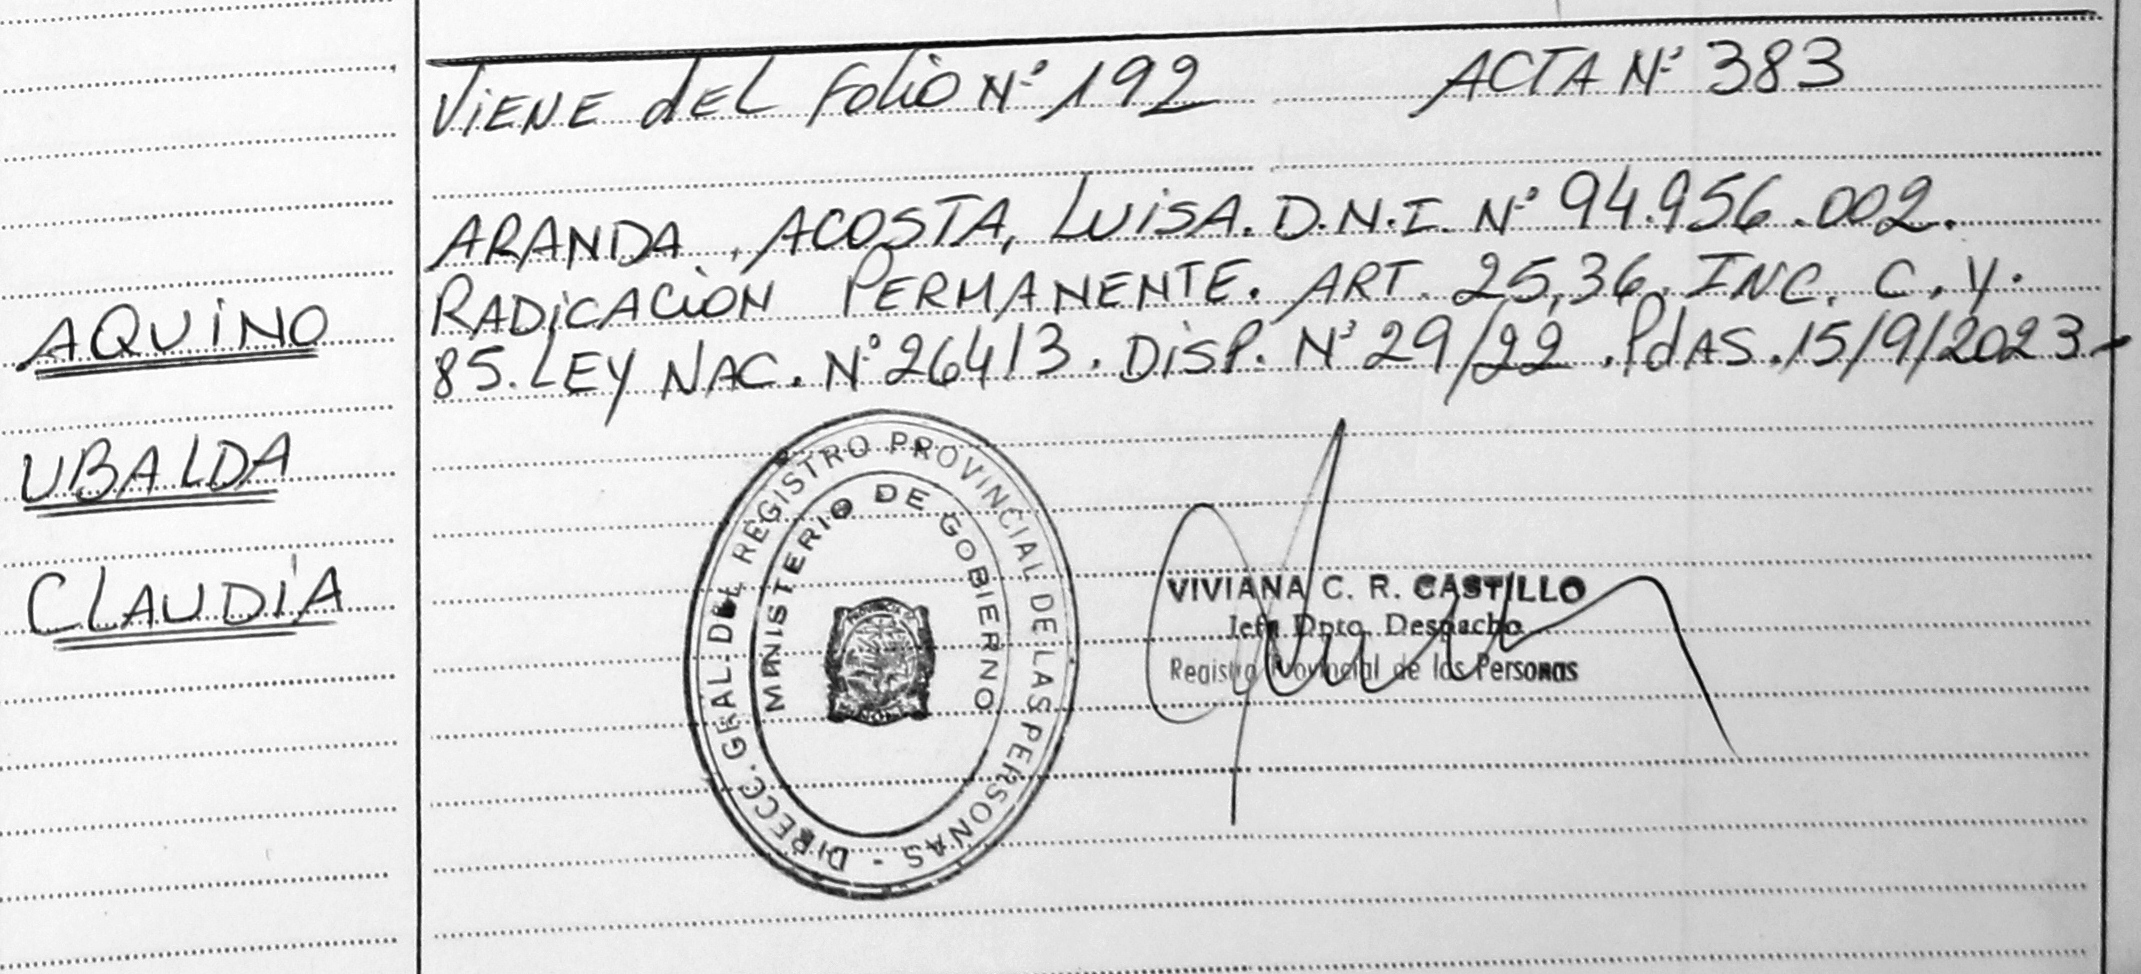 VIENE dEL FOLIO Nº 192 ACTA Nº 383
ARANDA, ACOSTA, LUISA. D.N.I. Nº 94.956.002.
RADICACIÓN PERMANENTE. ART. 25,36, INC. C. Y.
85. LEY NAC. Nº 26413. DISP. Nº 29/22. PdAS. 15/9/2023-
AQUINO
UBALDA
CLAUDIA
DIRECC. GRAL. DEL REGISTRO PROVINCIAL DE LAS PERSONAS -
MINISTERIO DE GOBIERNO
VIVIANA C. R. CASTILLO
Jefa Dpto. Despacho
Registro Provincial de las Personas